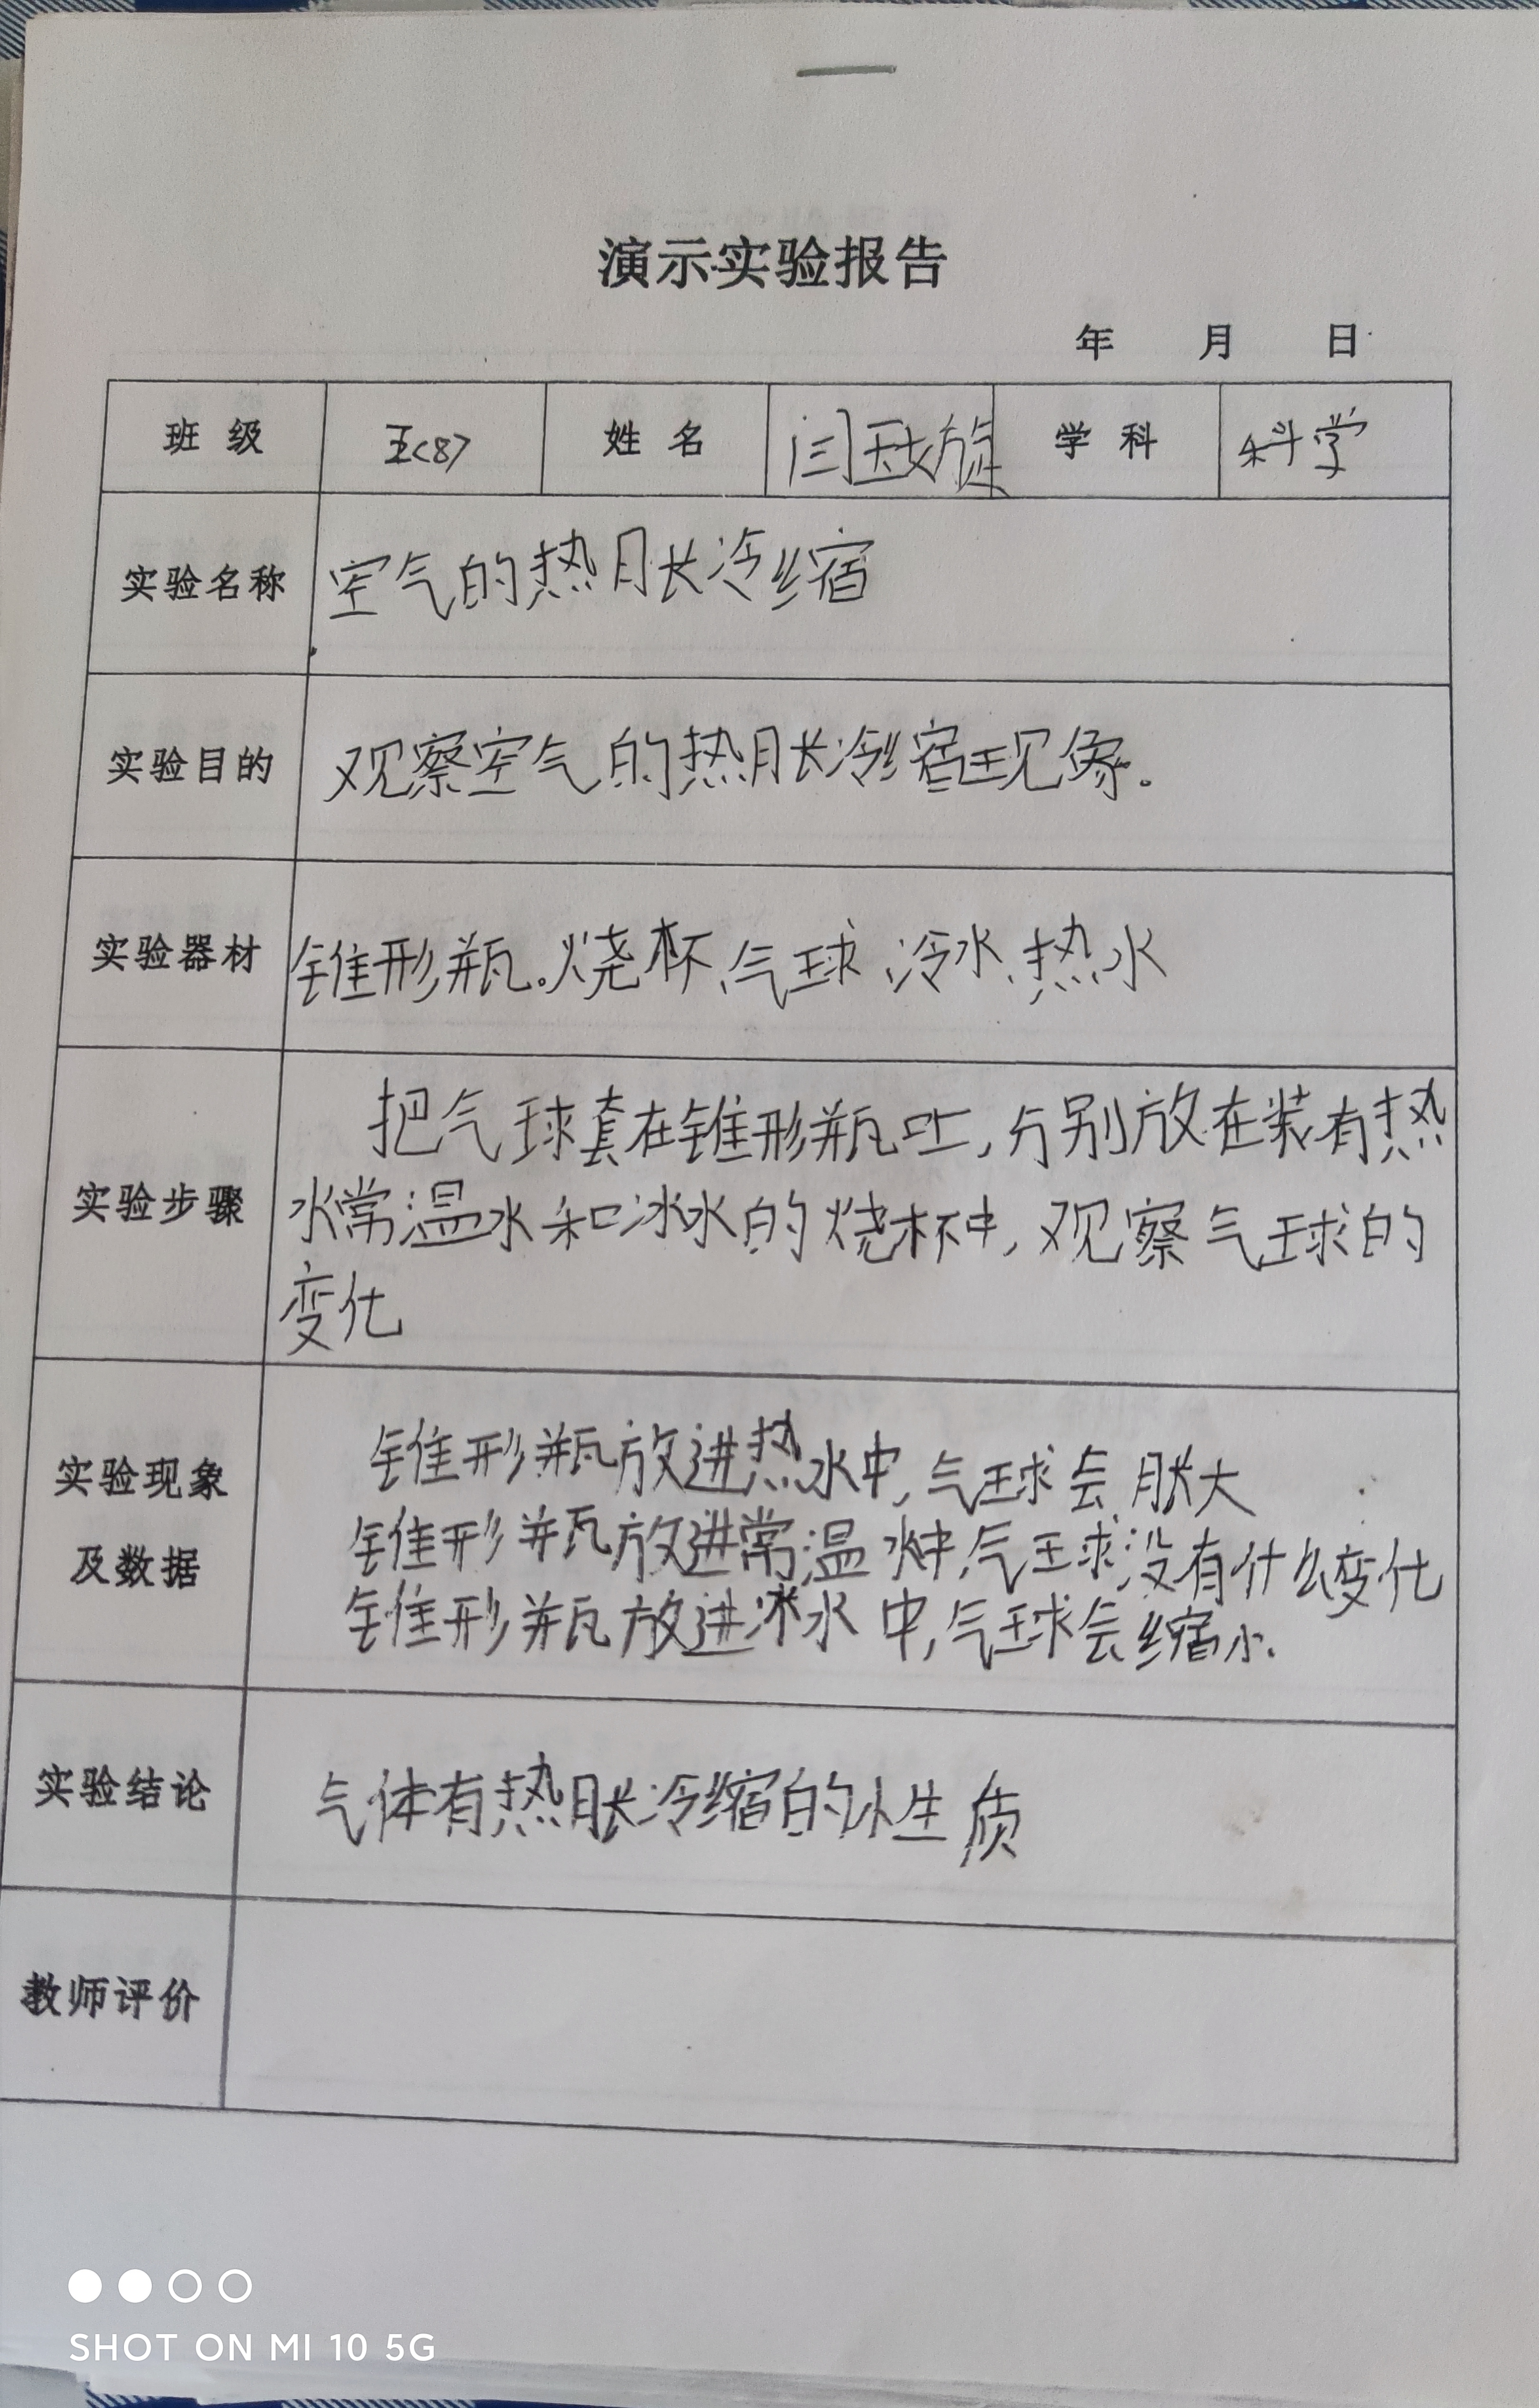 演示实验报告
年 月 日
班级 五(8) 姓名 闫 学科 科学
实验名称 空气的热胀冷缩
实验目的 观察空气的热胀冷缩现象。
实验器材 锥形瓶。烧杯、气球、冷水、热水
把气球套在锥形瓶口上,分别放在装有热
实验步骤 水常温水和冰水的烧杯中,观察气球的
变化
锥形瓶放进热水中,气球会胀大
实验现象
及数据
锥形瓶放进常温水中,气球没有什么变化
锥形瓶放进冰水中,气球会缩小.
实验结论 气体有热胀冷缩的性质
教师评价
SHOT ON MI 10 5G